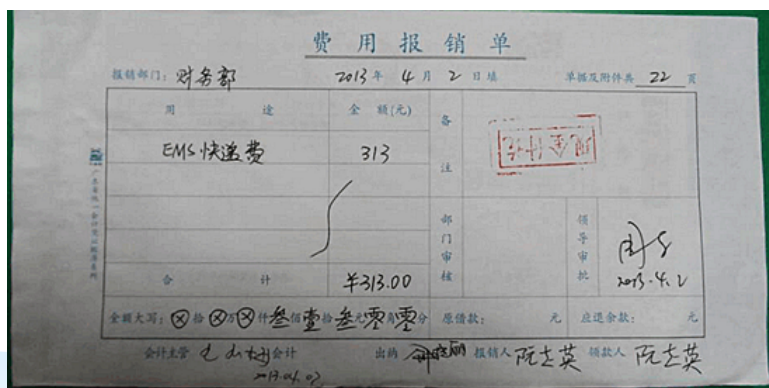 费用报销单
报销部门：财务部 2013年 4月 2日填 单据及附件共 22 页
用途 金额(元) 备注
EMS快递费 313
现金付讫
部门审核 领导审批
2013.4.2
合计 ¥313.00
金额大写：ⓧ拾ⓧ万ⓧ仟叁佰壹拾叁元零角零分 原借款： 元 应退余款： 元
会计主管 会计 出纳 报销人 阮志英 领款人 阮志英
2013.04.02